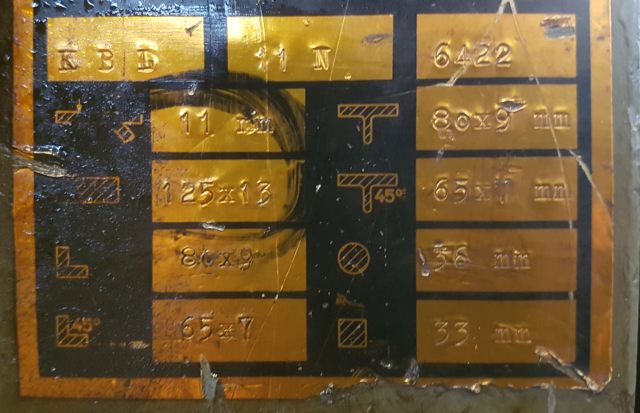 K B D 11 N 6422
11 mm 80x9 mm
125x13 45° 65x7 mm
80x9 36 mm
45° 65x7 33 mm